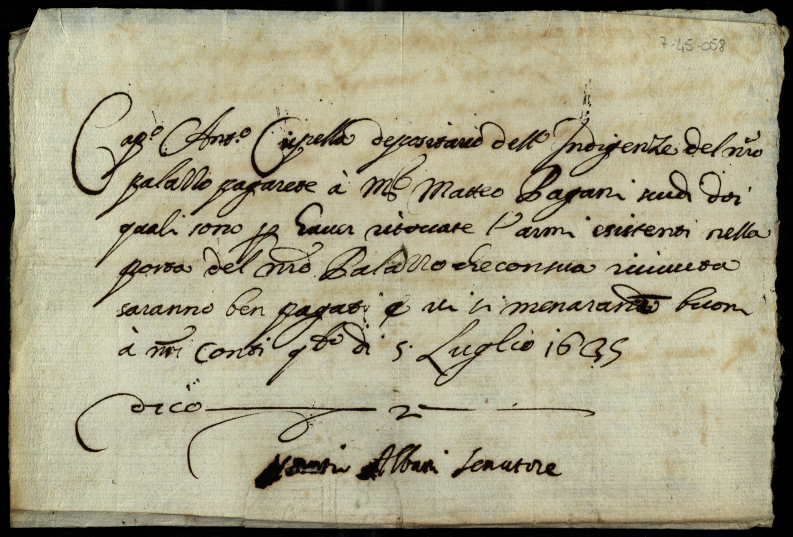 7-45-058
Cap.o Ant.o Cipella depositario dell' Indigenze del nro
palazzo pagarete à Mo Matteo Pagani scudi doi
quali sono p haver ritoccate l'armi esistenti nella
porta del nro Palazzo che con sua ricevuta
saranno ben pagati e vi si menaranno buoni
à nri Conti qto dì 5 Luglio 1635
dico 2
Albani senatore